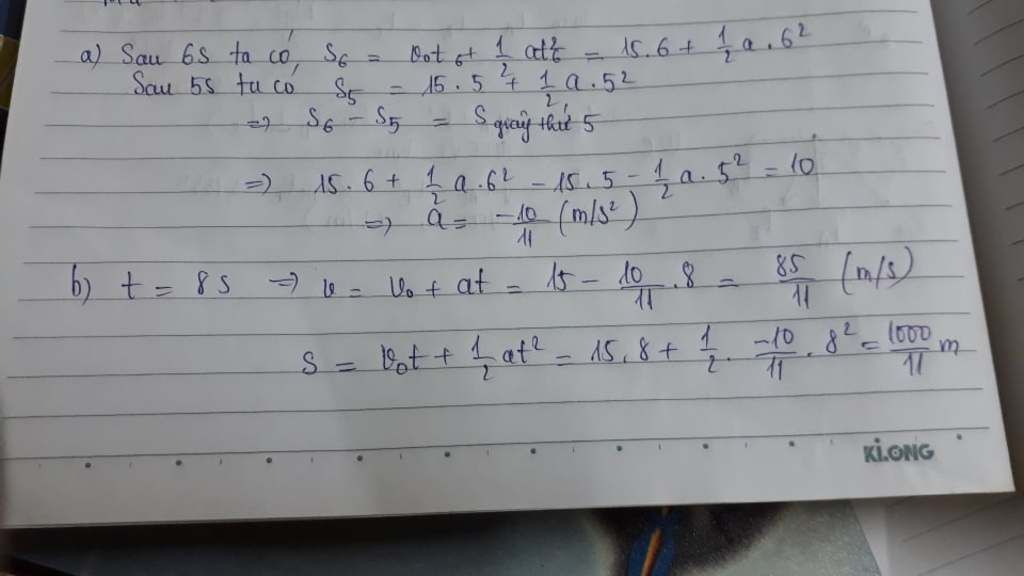 a) Sau 6s ta có, S₆ = v₀t₆ + 1/2 at₆² = 15.6 + 1/2 a.6²
Sau 5s ta có S₅ = 15.5 + 1/2 a.5²
=> S₆ - S₅ = S quãng thứ 5
=> 15.6 + 1/2 a.6² - 15.5 - 1/2 a.5² = 10
=> a = -10/11 (m/s²)
b) t = 8s => v = v₀ + at = 15 - 10/11 .8 = 85/11 (m/s)
S = v₀t + 1/2 at² = 15.8 + 1/2 . -10/11 . 8² = 1000/11 m
KLONG